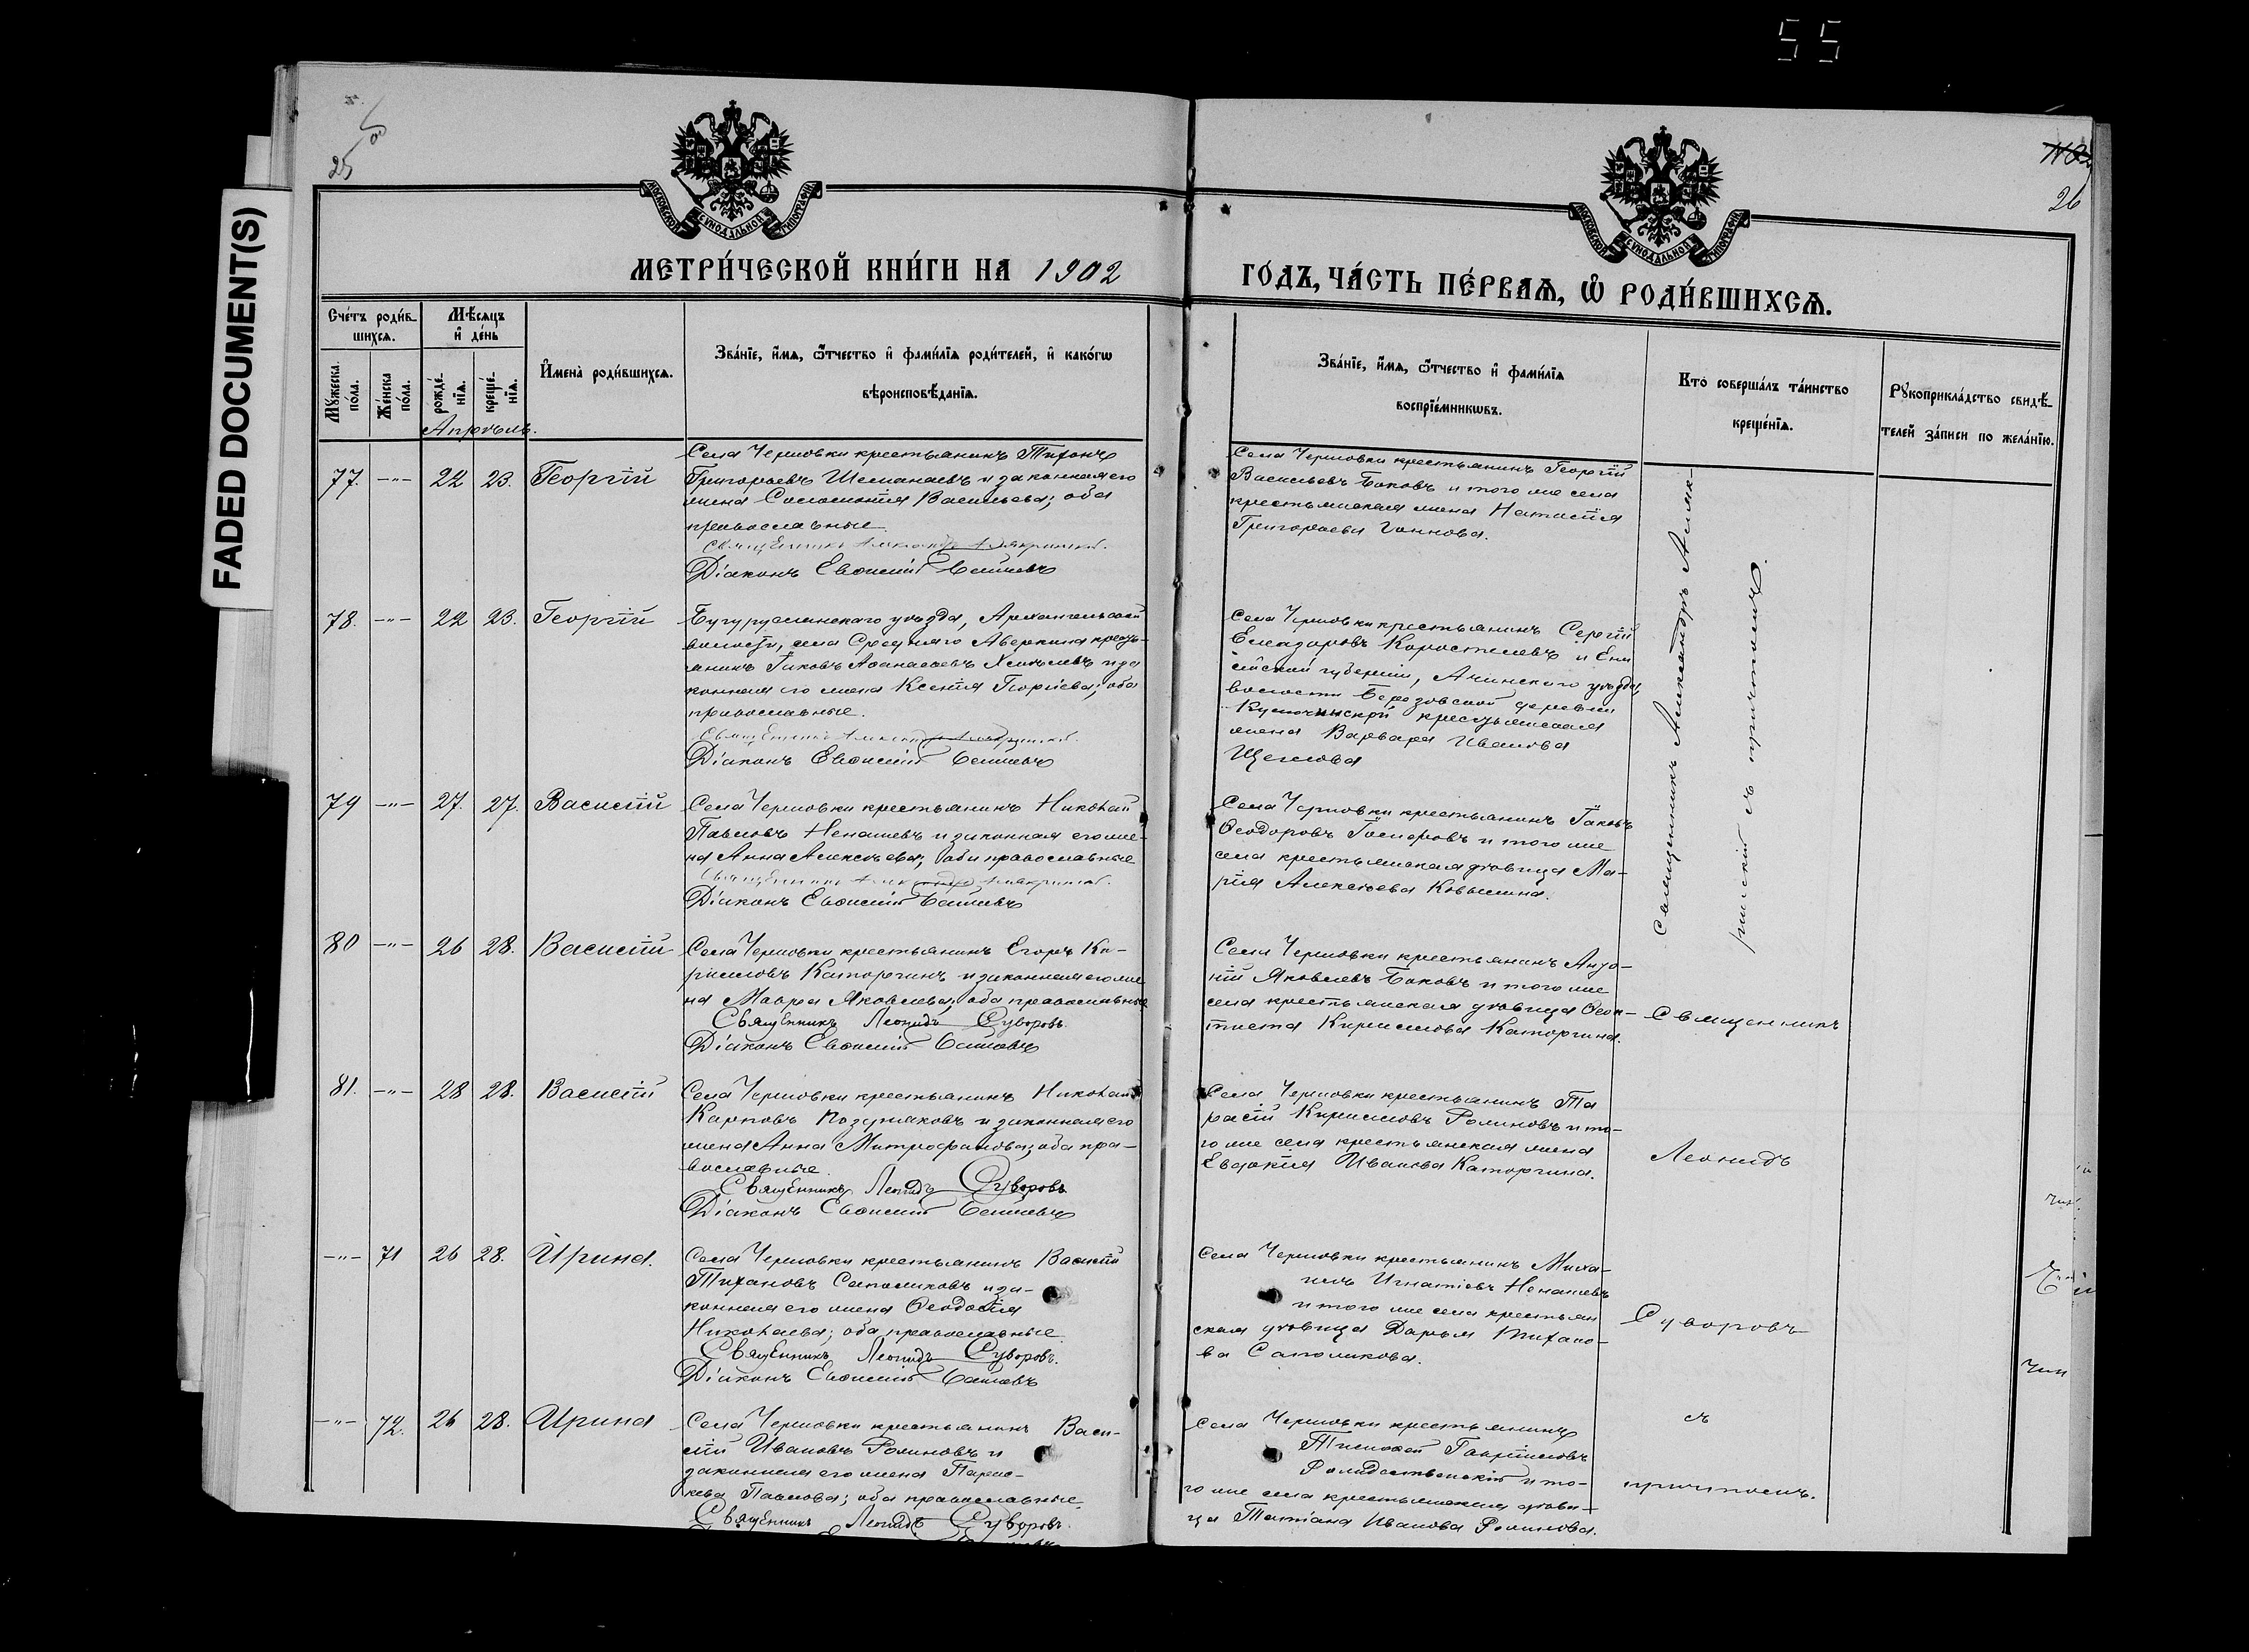 55
FADED DOCUMENT(S)
25
26
МОСКОВСКОЙ СѴНОДАЛЬНОЙ ТИПОГРАФІИ
МОСКОВСКОЙ СѴНОДАЛЬНОЙ ТИПОГРАФІИ
МЕТРИ́ЧЕСКОЙ КНИ́ГИ НА 1902
ГО́ДЪ, ЧА́СТЬ ПЕ́РВАѦ, Ѡ҆ РОДИ́ВШИХСѦ.
Сче́тъ роди́в-
шихсѧ.
Мѣ́сѧцъ
и҆ де́нь
Мꙋ́жеска
по́ла.
Же́нска
по́ла.
рожде́-
нїѧ.
креще́-
нїѧ.
И҆мена̀ роди́вшихсѧ.
Зва́нїе, и҆́мѧ, ѻ҆́тчество и҆ фами́лїѧ роди́телей, и҆ како́гѡ
вѣроисповѣ́данїѧ.
Зва́нїе, и҆́мѧ, ѻ҆́тчество и҆ фами́лїѧ
воспрїе́мникѡвъ.
Кто̀ соверша́лъ та́инство
креще́нїѧ.
Рꙋкоприкла́дство свидѣ́-
телей за́писи по жела́нїю.
Апрѣль.
77. -"- 22 23. Георгій
Села Черновки крестьянинъ Тихонъ
Григорьевъ и законная его
жена Соломонія Васильева; оба
православные.
Священникъ
Діаконъ Евѳимій
Села Черновки крестьянинъ Георгій
Васильевъ Боковъ и того же села
крестьянская жена Наталія
Григорьева
78. -"- 22 23. Георгій
Бугурусланскаго уѣзда, Архангельской
волости, села Средняго Аверкина кресть-
янинъ Іаковъ Аѳанасьевъ и за
конная его жена Ксенія Георгіева; оба
православные.
Священникъ
Діаконъ Евѳимій
Села Черновки крестьянинъ Сергій
Елеазаровъ Коростелевъ и Ени
сейской губерніи, Ачинскаго уѣзда,
волости Березовской деревни
крестьянская
жена Варвара Иванова
Щеглова
79 -"- 27. 27. Василій
Села Черновки крестьянинъ Николай
Павловъ Ненашевъ и законная его же-
на Анна Алексѣева; оба православные
Священникъ
Діаконъ Евѳимій
Села Черновки крестьянинъ Іаковъ
Ѳеодоровъ и того же
села крестьянская дѣвица Ма-
рія Алексѣева
Священникъ Александръ
съ причтомъ.
80 -"- 26 28. Василій
Села Черновки крестьянинъ Егоръ Ки-
рилловъ Каторгинъ и законная его же
на Мавра Яковлева; оба православные
Священникъ Леонидъ Суворовъ.
Діаконъ Евѳимій
Села Черновки крестьянинъ Анто-
ній Яковлевъ Боковъ и того же
села крестьянская дѣвица Ѳеок-
тиста Кириллова Каторгина.
Священникъ
81. -"- 28 28. Василій
Села Черновки крестьянинъ Николай
Карповъ Поздняковъ и законная его
жена Анна Митрофанова; оба пра-
вославные.
Священникъ Леонидъ Суворовъ
Діаконъ Евѳимій
Села Черновки крестьянинъ Та
расій Кирилловъ и то-
го же села крестьянская жена
Евдокія Иванова Каторгина.
Леонидъ
-"- 71 26 28. Ирина.
Села Черновки крестьянинъ Василій
Тихановъ Сапожниковъ и за-
конная его жена Ѳеодосія
Николаева; оба православные.
Священникъ Леонидъ Суворовъ.
Діаконъ Евѳимій
Села Черновки крестьянинъ Миха-
илъ Игнатіевъ Ненашевъ
и того же села крестьян
ская дѣвица Дарья Тихано-
ва
Суворовъ
-"- 72. 26 28. Ирина
Села Черновки крестьянинъ Васи-
лій Ивановъ и
законная его жена Парас-
кева Павлова; оба православные.
Священникъ Леонидъ Суворовъ.
Села Черновки крестьянинъ
Тимоѳей Гавріиловъ
Рождественскій и то-
го же села крестьянская дѣви-
ца Татіана Иванова
съ
причтомъ.